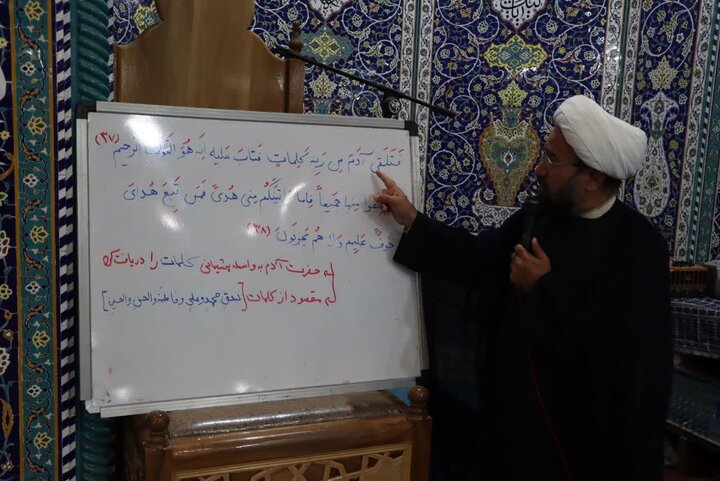 فَتَلَقَّىٰ آدَمُ مِن رَبِّهِ كَلِمَاتٍ فَتَابَ عَلَيهِ إِنَّهُ هُوَ التَّوَّابُ الرَّحیم (٣٧)
مِنها جَمیعاً فَإِمّا يَأتِيَنَّكُم مِنی هُدیً فَمَن تَبِعَ هُدایَ
خَوفٌ عَلَیهِم وَلا هُم یَحزَنُونَ (٣٨)
حضرت آدم به واسطه پشیمانی کلمات را دریافت
مقصود از کلمات [بحق محمد و علی و فاطمة والحسن والحسین]